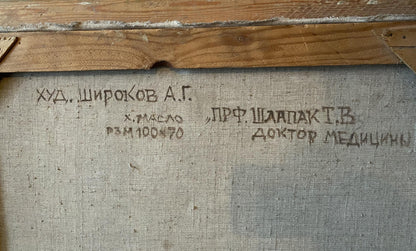 ХУД., ШИРОКОВ А.Г.
Х. МАСЛО
РЗМ 100×70
„ПРФ. ШЛАПАК Т.В.
ДОКТОР МЕДИЦИНЫ